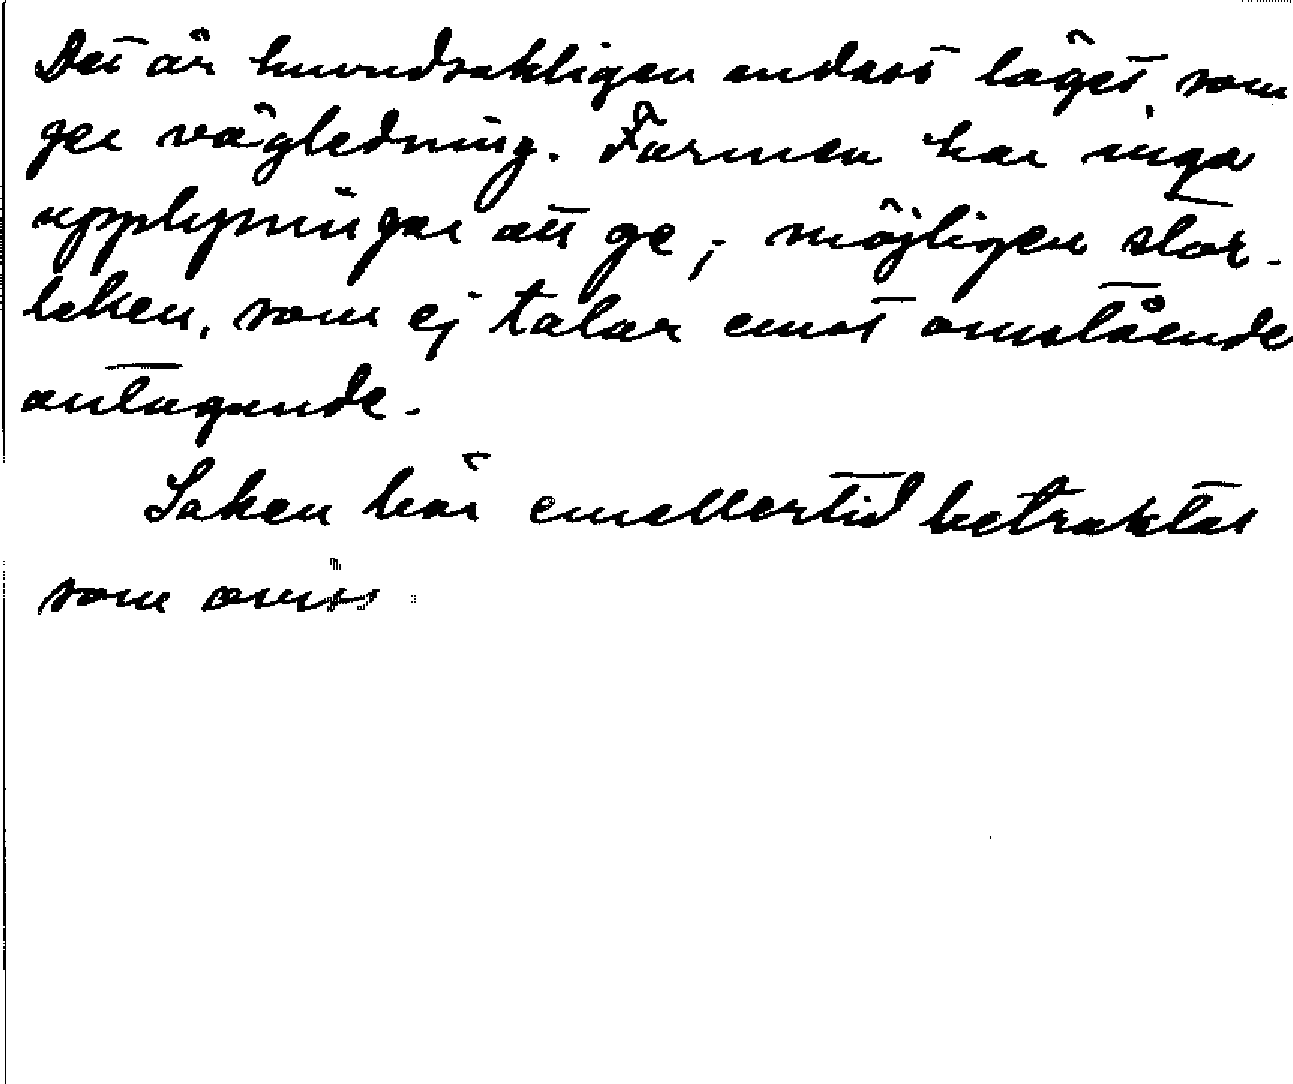 Det är huvudsakligen endast läget, som
ger vägledning. Formen har inga
upplysningar att ge, möjligen stor-
leken, som ej talar emot omstående
antagande.
Saken bör emellertid betraktas
som oviss.